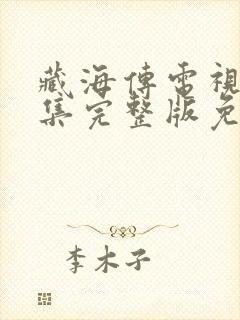 藏海傳電視
集完整版免
李木子